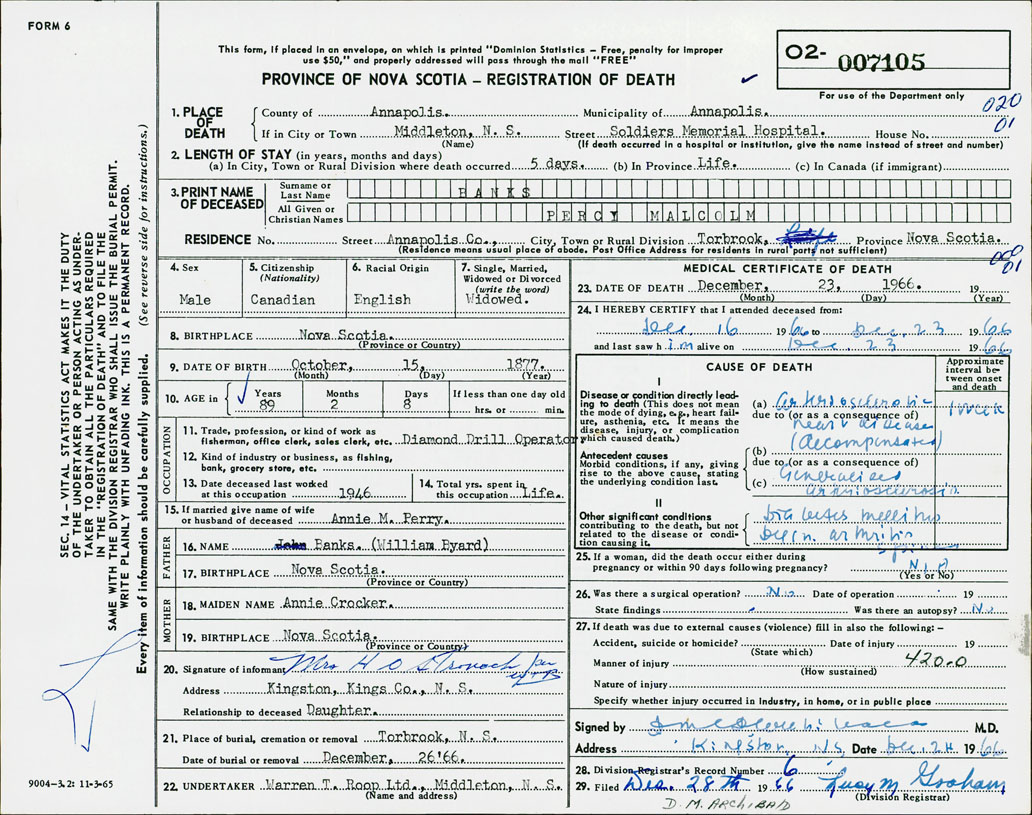 FORM 6
This form, if placed in an envelope, on which is printed "Dominion Statistics – Free, penalty for improper
use $50," and properly addressed will pass through the mail "FREE"
PROVINCE OF NOVA SCOTIA – REGISTRATION OF DEATH
02- 007105
For use of the Department only
020
01
1. PLACE OF DEATH
County of Annapolis. Municipality of Annapolis.
If in City or Town Middleton, N. S. Street Soldiers Memorial Hospital. House No.
(Name) (If death occurred in a hospital or institution, give the name instead of street and number)
2. LENGTH OF STAY (in years, months and days)
(a) In City, Town or Rural Division where death occurred 5 days. (b) In Province Life. (c) In Canada (if immigrant)
3. PRINT NAME OF DECEASED
Surname or Last Name BANKS
All Given or Christian Names PERCY MALCOLM
RESIDENCE No. Street Annapolis Co., City, Town or Rural Division Torbrook, Province Nova Scotia.
(Residence means usual place of abode. Post Office Address for residents in rural parts not sufficient)
01
4. Sex
Male
5. Citizenship
(Nationality)
Canadian
6. Racial Origin
English
7. Single, Married,
Widowed or Divorced
(write the word)
Widowed.
8. BIRTHPLACE Nova Scotia.
(Province or Country)
9. DATE OF BIRTH October, 15, 1877.
(Month) (Day) (Year)
10. AGE in Years Months Days If less than one day old
89 2 8 hrs. or min.
OCCUPATION
11. Trade, profession, or kind of work as
fisherman, office clerk, sales clerk, etc. Diamond Drill Operator,
12. Kind of industry or business, as fishing,
bank, grocery store, etc.
13. Date deceased last worked
at this occupation 1946
14. Total yrs. spent in
this occupation Life.
15. If married give name of wife
or husband of deceased Annie M. Perry.
FATHER
16. NAME John Banks. (William Byard)
17. BIRTHPLACE Nova Scotia.
(Province or Country)
MOTHER
18. MAIDEN NAME Annie Crocker.
19. BIRTHPLACE Nova Scotia.
(Province or Country)
20. Signature of informant Mrs H O Stronach per
Address Kingston, Kings Co., N. S.
Relationship to deceased Daughter.
21. Place of burial, cremation or removal Torbrook, N. S.
Date of burial or removal December, 26'66.
22. UNDERTAKER Warren T. Roop Ltd., Middleton, N. S.
(Name and address)
MEDICAL CERTIFICATE OF DEATH
23. DATE OF DEATH December, 23, 1966. 19
(Month) (Day) (Year)
24. I HEREBY CERTIFY that I attended deceased from:
Dec. 16 1966 to Dec. 23 1966
and last saw him alive on Dec. 23 1966
CAUSE OF DEATH
Approximate
interval be-
tween onset
and death
I
Disease or condition directly lead-
ing to death (This does not mean
the mode of dying, e.g., heart fail-
ure, asthenia, etc. It means the
disease, injury, or complication
which caused death.)
(a) arteriosclerotic 1 week
due to (or as a consequence of)
heart disease
(decompensated)
Antecedent causes
Morbid conditions, if any, giving
rise to the above cause, stating
the underlying condition last.
(b)
due to (or as a consequence of)
(c) Generalised
arteriosclerosis.
II
Other significant conditions
contributing to the death, but not
related to the disease or condi-
tion causing it.
Diabetes mellitus
Degen. arthritis
25. If a woman, did the death occur either during
pregnancy or within 90 days following pregnancy?
(Yes or No)
26. Was there a surgical operation? No Date of operation 19
State findings Was there an autopsy? No
27. If death was due to external causes (violence) fill in also the following:–
Accident, suicide or homicide? Date of injury 19
(State which)
Manner of injury 420.0
(How sustained)
Nature of injury
Specify whether injury occurred in industry, in home, or in public place
Signed by M.D.
Address Kingston, NS. Date Dec. 24 1966
28. Division Registrar's Record Number 6
29. Filed Dec. 28th 1966 Lucy M Graham
(Division Registrar)
D. M. ARCHIBALD
SEC. 14 – VITAL STATISTICS ACT MAKES IT THE DUTY
OF THE UNDERTAKER OR PERSON ACTING AS UNDER-
TAKER TO OBTAIN ALL THE PARTICULARS REQUIRED
IN THE "REGISTRATION OF DEATH" AND TO FILE THE
SAME WITH THE DIVISION REGISTRAR WHO SHALL ISSUE THE BURIAL PERMIT.
WRITE PLAINLY WITH UNFADING INK. THIS IS A PERMANENT RECORD.
Every item of information should be carefully supplied. (See reverse side for instructions.)
9004-3.2: 11-3-65